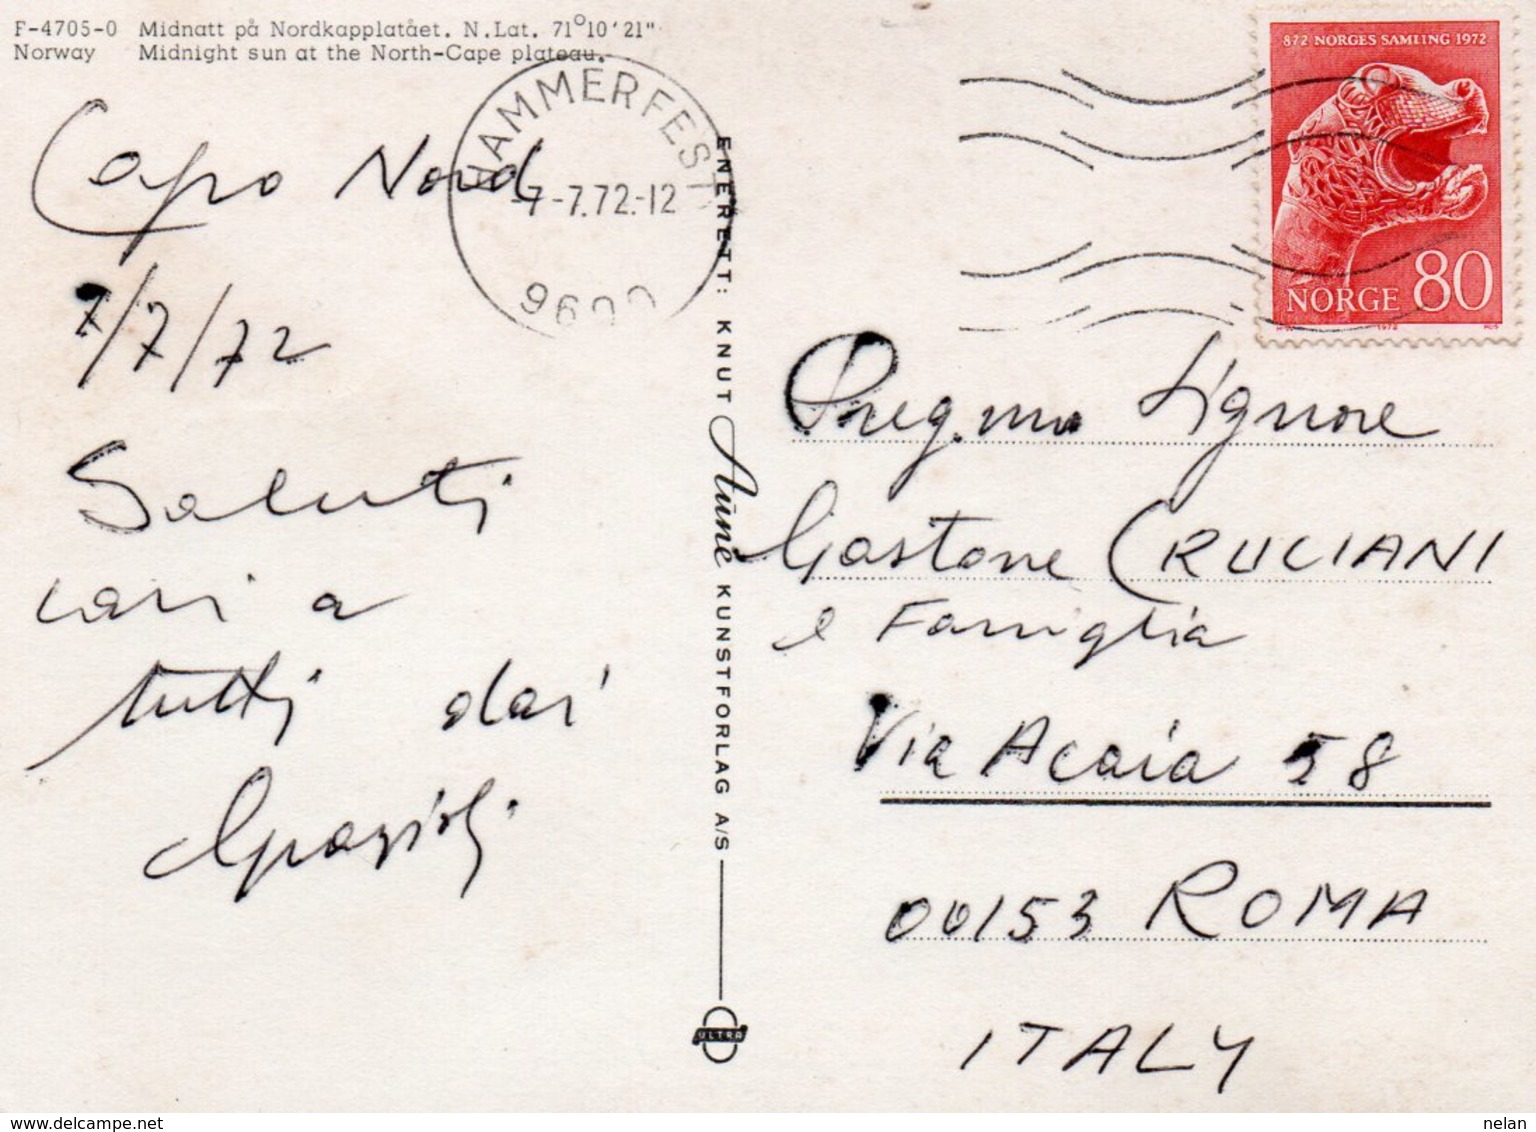 F-4705-0 Midnatt på Nordkapplatået. N.Lat. 71°10'21"
Norway Midnight sun at the North-Cape plateau.
HAMMERFEST
-7-7.72.-12
9600
872 NORGES SAMLING 1972
NORGE 80
1972
Capo Nord
7/7/72
Saluti
cari a
tutti dai
Grazioli
ENERETT: KNUT Aune KUNSTFORLAG A/S
ULTRA
Preg.mo Signore
Gastone CRUCIANI
e Famiglia
Via Acaia 58
00153 ROMA
ITALY
nelan